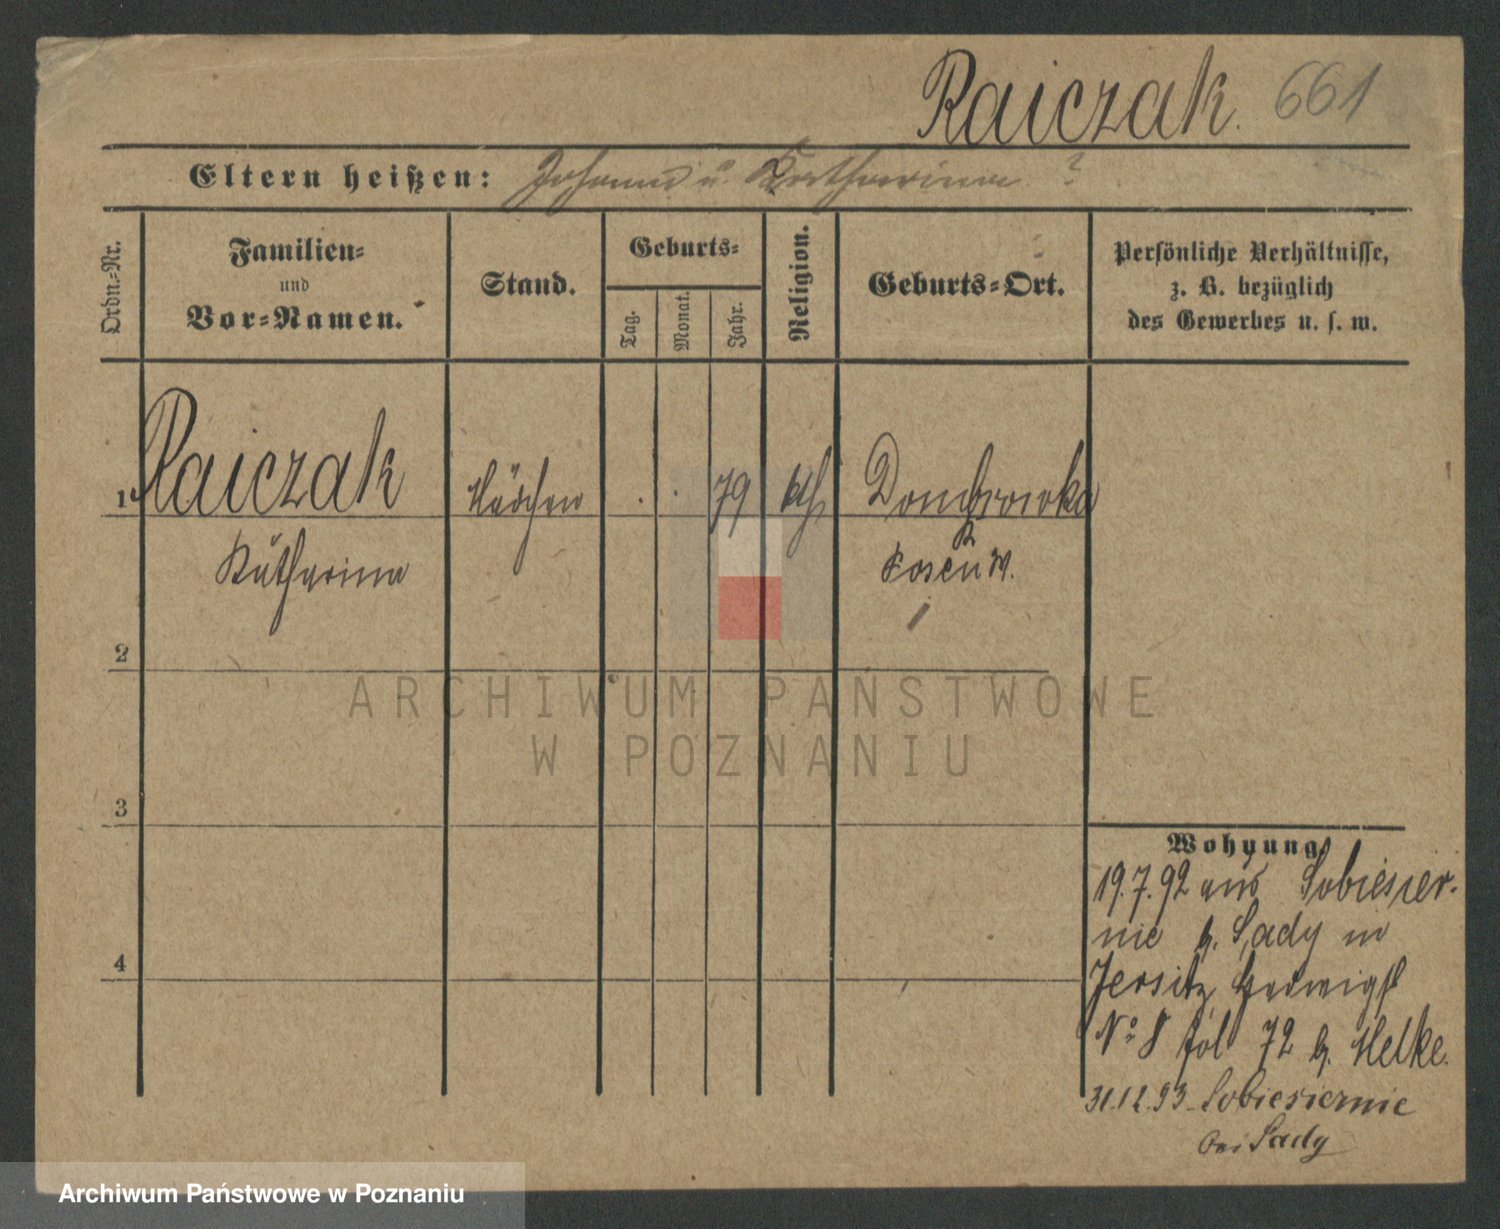 Raiczak. 661
Eltern heißen: Johann u. Katharina ?
Ordn.-Nr.
Familien-
und
Vor-Namen.
Stand.
Geburts-
Tag.
Monat.
Jahr.
Religion.
Geburts-Ort.
Persönliche Verhältnisse,
z. B. bezüglich
des Gewerbes u. s. w.
1 Raiczak Mädchen . . 79 kth Dombrowka
Katharina
Posen W.
2
ARCHIWUM PAŃSTWOWE
W POZNANIU
3
4
Wohnung
19.7.92 aus Sobiesier-
nie b. Sady in
Jersitz Hedwigst
No 8 fol 72 b. Helke.
31.12.93 Sobiesiernie
bei Sady
Archiwum Państwowe w Poznaniu